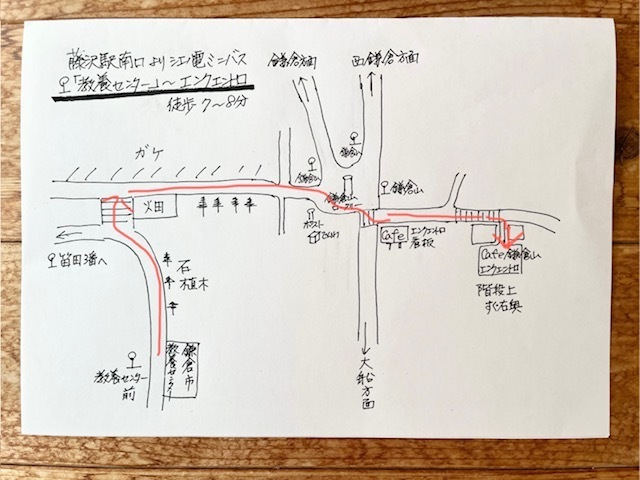 藤沢駅南口より江ノ電ミニバス
「教養センター」〜エンクエントロ
徒歩7〜8分
鎌倉方面
西鎌倉方面
ガケ
鎌倉山
鎌倉山
鎌倉山
鎌倉山
畑田
ポスト
Cafe
エンクエントロ
看板
Cafe鎌倉山
エンクエントロ
階段上
すぐ右奥
笛田3番へ
石
植木
鎌倉市
教養センター
教養センター
前
大船方面